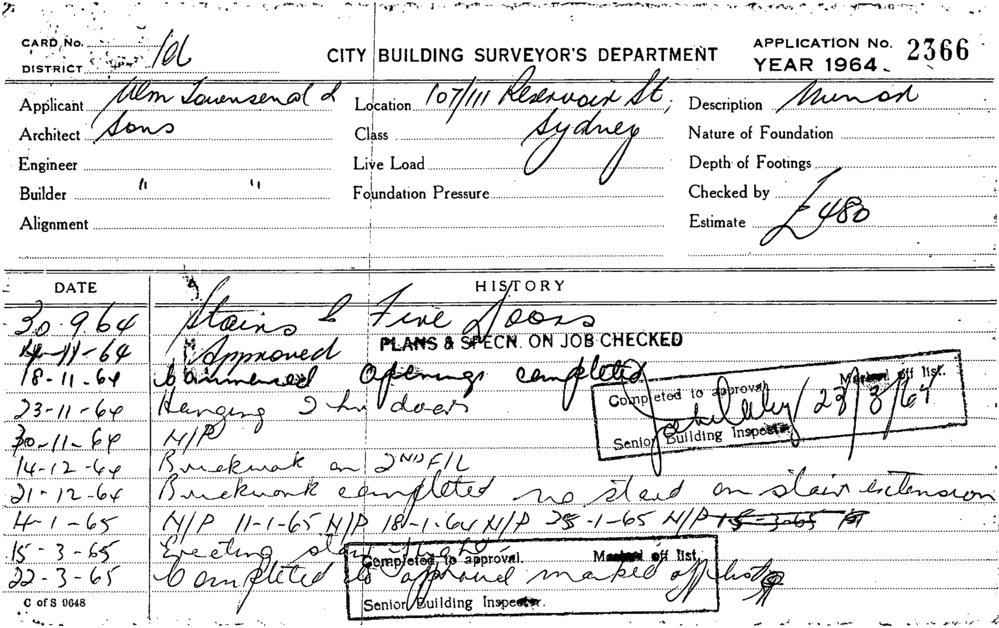 CARD No.
DISTRICT
CITY BUILDING SURVEYOR'S DEPARTMENT
APPLICATION No. 2366
YEAR 1964
Applicant Wm Townsend &
Location 107/111 Reservoir St,
Description Minor
Architect Sons
Class Sydney
Nature of Foundation
Engineer
Live Load
Depth of Footings
Builder " "
Foundation Pressure
Checked by
Alignment
Estimate £480
DATE HISTORY
30.9.64 Stairs & Fire Doors
11-64 Approved PLANS & SPECN. ON JOB CHECKED
18-11-64 Commenced openings completed
23-11-64 Hanging 2 hr doors
30-11-64 N/P
14-12-64 Brickwork on 2ND F/L
21-12-64 Brickwork completed no start on stair extension
4-1-65 N/P 11-1-65 N/P 18-1-64 N/P 25-1-65 N/P 15-3-65
15-3-65 Erecting stair flight
22-3-65 Completed to approval marked off list
Completed to approval. Marked off list.
23/3/67
Senior Building Inspector.
Completed to approval. Marked off list.
Senior Building Inspector.
C of S 9648